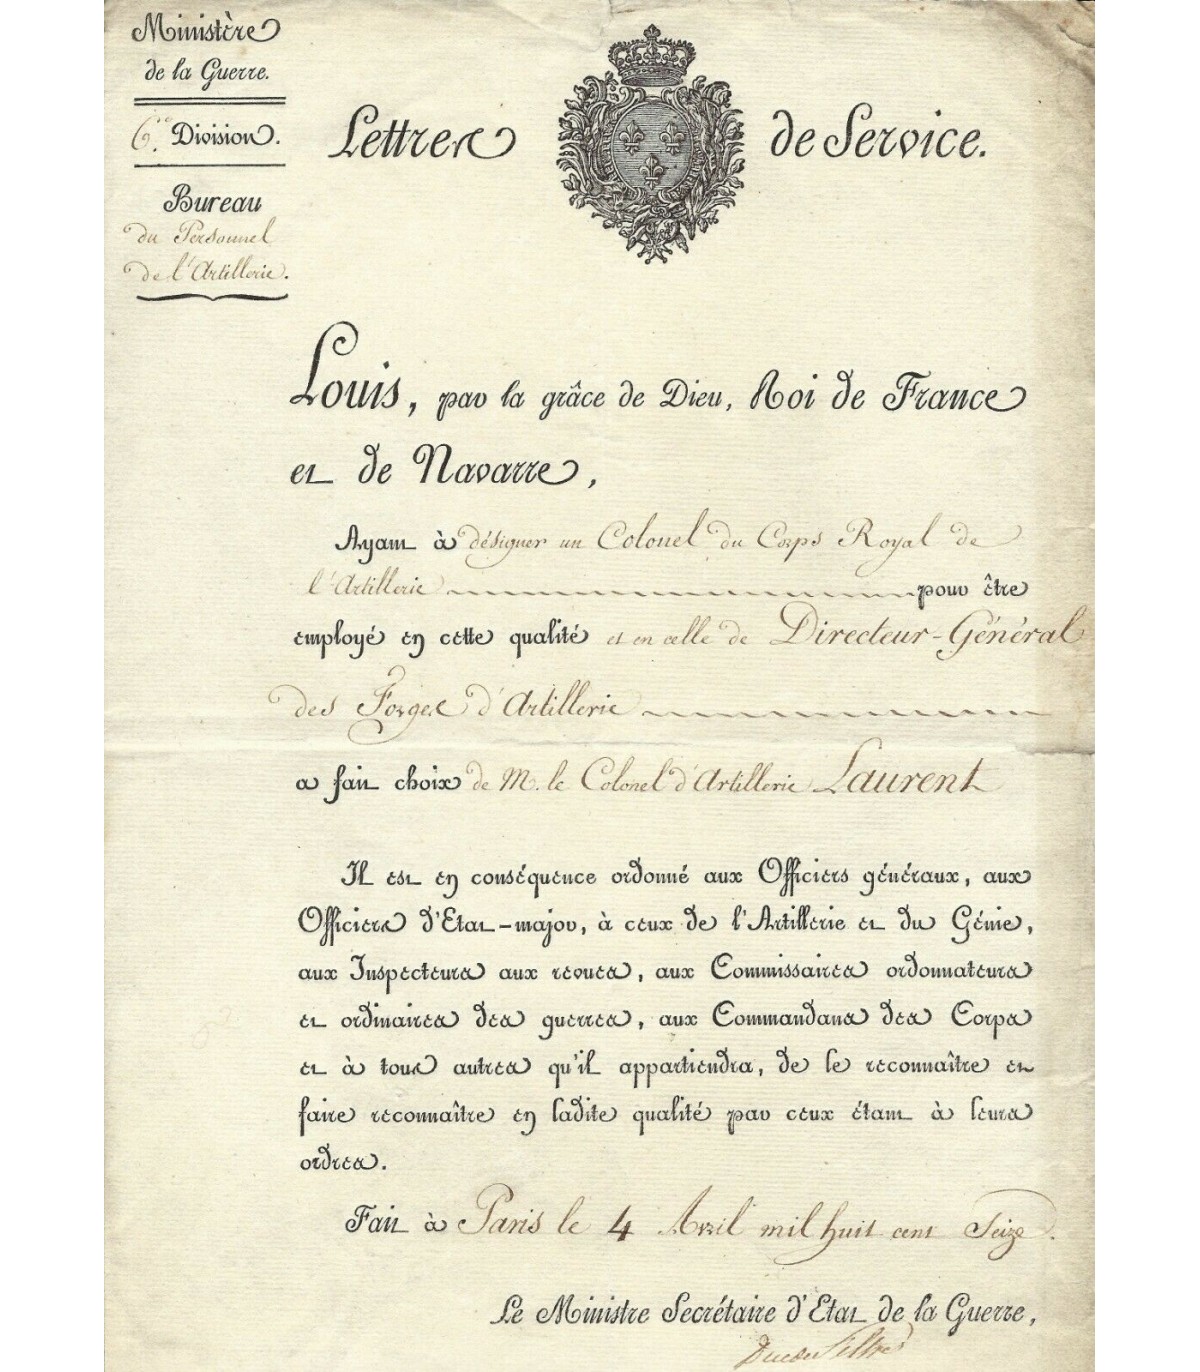 Ministère
de la Guerre.
6.e Division.
Bureau
du Personnel
de l'Artillerie.
Lettres de Service.
Louis, par la grâce de Dieu, Roi de France
et de Navarre,
Ayant à désigner un Colonel du Corps Royal de
l'Artillerie pour être
employé en cette qualité et en celle de Directeur-Général
des Forges d'Artillerie
a fait choix de M. le Colonel d'Artillerie Laurent
Il est en conséquence ordonné aux Officiers généraux, aux
Officiers d'Etat-major, à ceux de l'Artillerie et du Génie,
aux Inspecteurs aux revues, aux Commissaires ordonnateurs
et ordinaires des guerres, aux Commandans des Corps
et à tous autres qu'il appartiendra, de le reconnaître et
faire reconnaître en ladite qualité par ceux étant à leurs
ordres.
Fait à Paris le 4 Avril mil huit cent Seize.
Le Ministre Secrétaire d'Etat de la Guerre,
Duc de Feltre